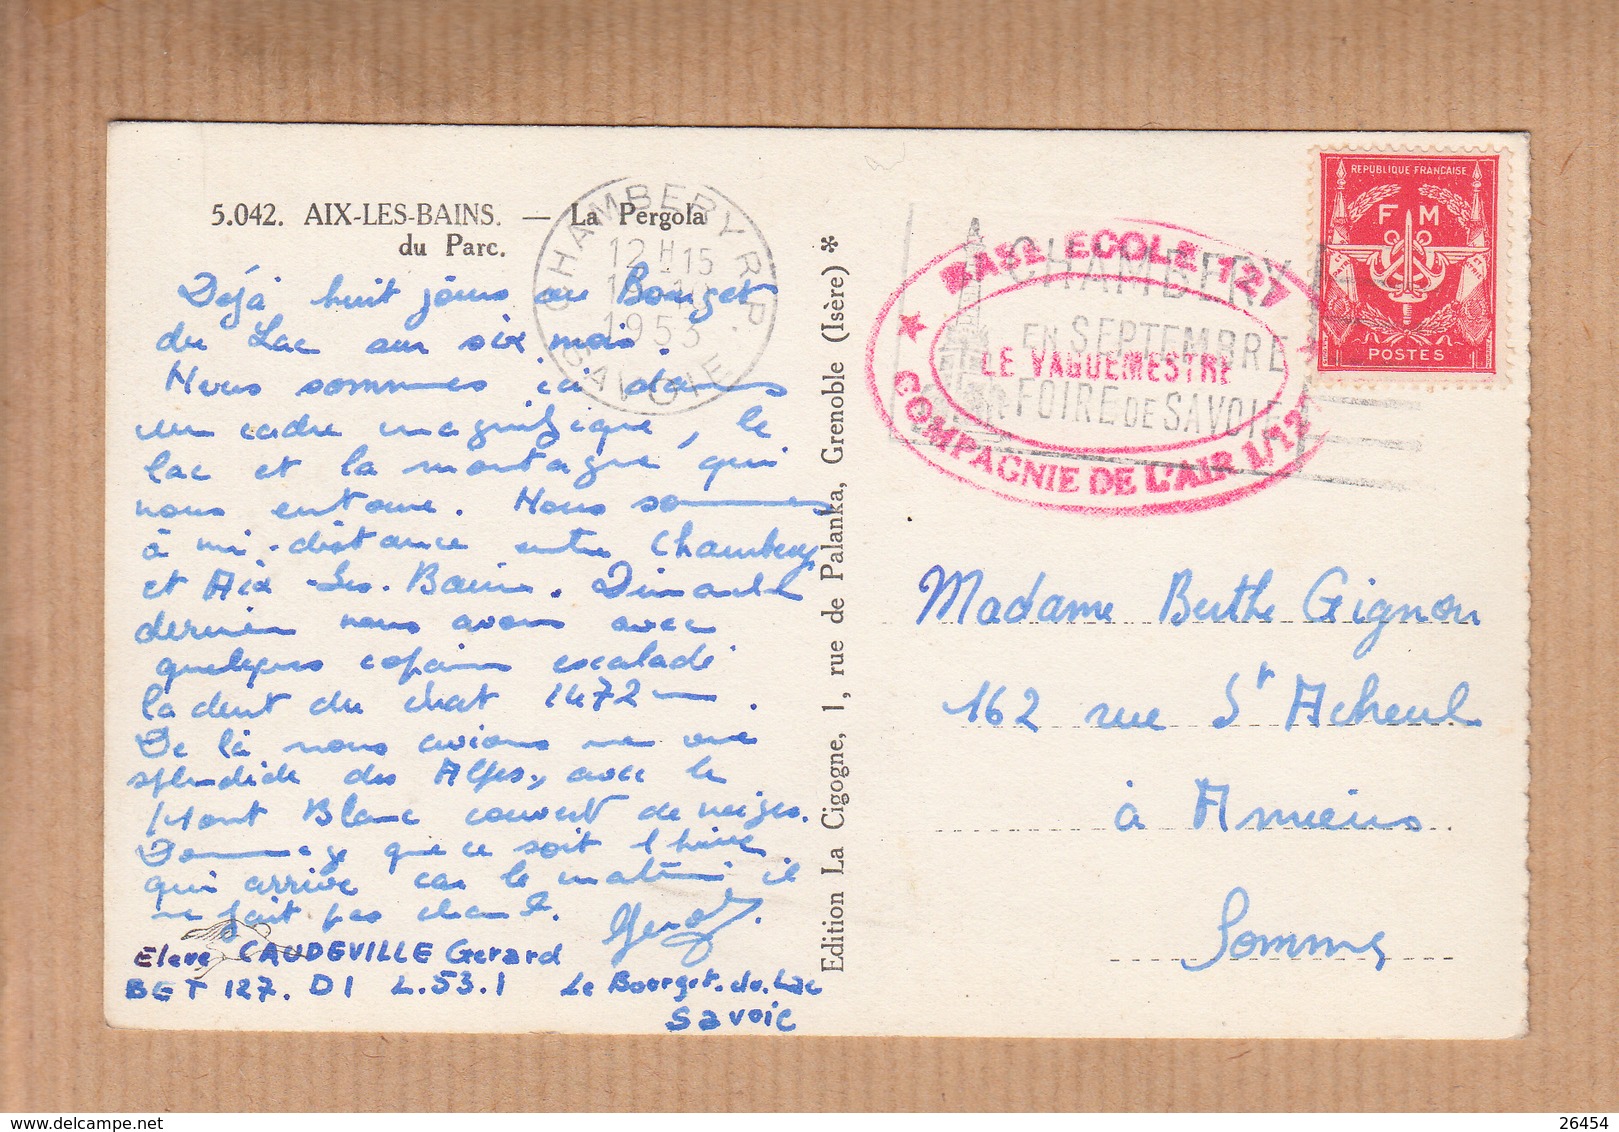 5.042. AIX-LES-BAINS. — La Pergola
du Parc.
Déjà huit jours au Bourget
du Lac sur six mois.
Nous sommes ici dans
un cadre magnifique, le
lac et la montagne qui
nous entoure. Nous sommes
à mi-distance entre Chambery
et Aix Les-Bains. Dimanche
dernier nous avons avec
quelques copains escaladé
la dent du chat 1472 m.
De là nous avions une vue
splendide des Alpes, avec le
Mont Blanc couvert de neiges.
Dommage que ce soit l'hiver
qui arrive car le matin il
ne fait pas chaud.
Gérard
Eleve CAUDEVILLE Gerard
BET 127. D1 L.53.1 Le Bourget.du.Lac
Savoie
Edition La Cigogne, 1, rue de Palanka, Grenoble (Isère) *
CHAMBERY R.P.
12H15
10
1953
SAVOIE
CHAMBERY
EN SEPTEMBRE
FOIRE DE SAVOIE
BASE ECOLE 127
LE VAGUEMESTRE
COMPAGNIE DE L'AIR 1/127
REPUBLIQUE FRANCAISE
F M
POSTES
Madame Berthe Gignon
162 rue St Acheul
à Amiens
Somme
26454